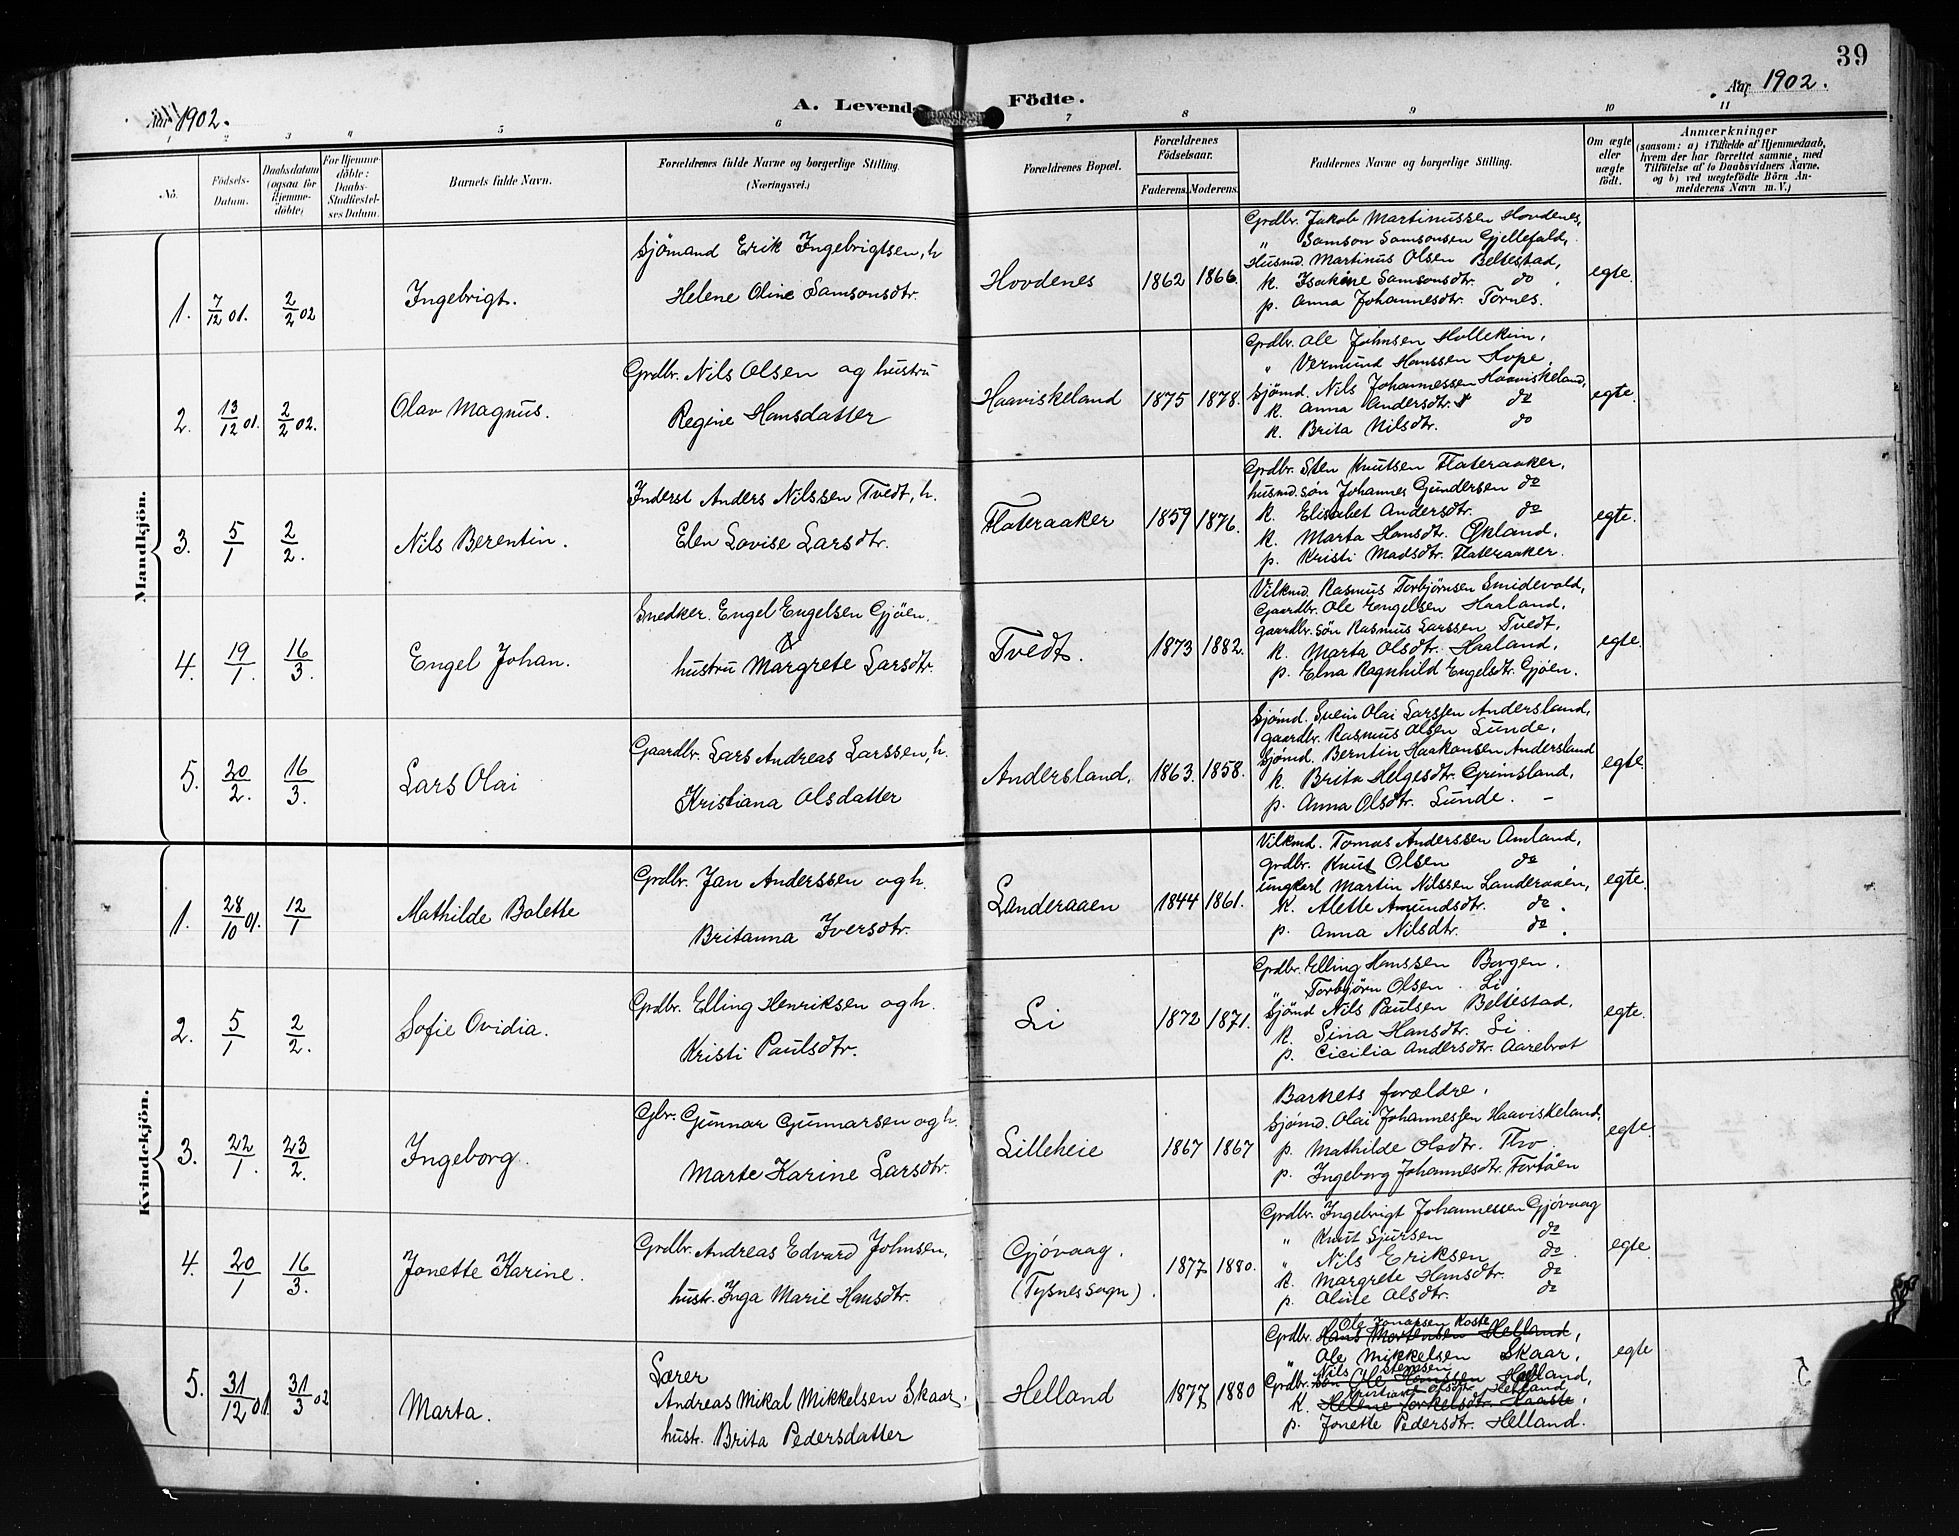 39
Aar 1902.
A. Levende Födte.
Aar 1902.
1 2 3 4 5 6 7 8 9 10 11
No.
Födsels-Datum.
Daabsdatum (ogsaa for Hjemme-döbte)
For Hjemme-döbte: Daabs-Stadfæstelses Datum.
Barnets fulde Navn.
Forældrenes fulde Navne og borgerlige Stilling. (Næringsvei.)
Forældrenes Bopæl.
Forældrenes Födselsaar.
Faderens. Moderens.
Faddernes Navne og borgerlige Stilling.
Om ægte eller uægte födt.
Anmærkninger
(saasom: a) i Tilfælde af Hjemmedaab, hvem der har forrettet samme, med Tilföielse af to Daabsvidners Navne. og b) ved uægtefödte Börn Anmelderens Navn m. V.)
Mandkjön.
1. 7/12 01. 2/2 02 Ingebrigt.
Sjömand Erik Ingebrigtsen, h
Helene Oline Samsonsdtr.
Hovdenes 1862 1866.
Grdbr. Jakob Martinussen Hovdenes,
" Samson Samsonsen Gjellefald,
Husmd. Martinus Olsen Beltestad,
k. Isakine Samsonsdtr. do
p. Anna Johannesdtr. Tornes.
egte.
2. 13/12 01. 2/2 02. Olav Magnus.
Grdbr. Nils Olsen og hustru
Regine Hansdatter
Haaviskeland 1875 1878.
Grdbr. Ole Johnsen Hollekim,
" Vermund Hanssen Hope,
Sjömd. Nils Johannessen Haaviskeland,
k. Anna Andersdtr. do
k. Brita Nilsdtr. do
egte.
3. 5/1 2/2. Nils Berentin.
Inderst Anders Nilssen Tvedt, h.
Elen Lovise Larsdtr.
Flateraaker 1859 1876.
Grdbr. Sten Knutsen Flateraaker,
husmd. søn Johannes Gundersen do
k. Elisabet Andersdtr. do
k. Marta Hansdtr. Økland,
p. Kristi Madsdtr. Flateraaker.
egte.
4. 19/1. 16/3. Engel Johan.
Snedker Engel Engelsen Gjöen,
&
hustru Margrete Larsdtr.
Tvedt. 1873 1882.
Vilkmd. Rasmus Torbjørnsen Smidevold,
Gaardbr. Ole Engelsen Haaland,
gaardbr. søn Rasmus Larssen Tvedt,
k. Marta Olsdtr. Haaland,
p. Elna Ragnhild Engelsdtr. Gjöen.
egte.
5. 20/2. 16/3. Lars Olai
Gaardbr. Lars Andreas Larssen, h.
Kristiana Olsdatter
Andersland, 1863. 1858.
Sjömd. Svein Olai Larssen Andersland,
gaardbr. Rasmus Olsen Lunde,
Sjömd. Berntin Haakonsen Andersland
k. Brita Helgesdtr. Grimsland,
p. Anna Olsdtr. Lunde. –
egte.
Kvindekjön.
1. 28/10 01. 12/1 Mathilde Bolette
Grdbr. Jan Anderssen og h.
Britanna Iversdtr.
Landeraaen 1844 1861.
Vilkmd. Tomas Anderssen Amland,
grdbr. Knut Olsen do
ungkarl Martin Nilssen Landeraaen,
k. Alette Amundsdtr. do.
p. Anna Nilsdtr. do.
egte.
2. 5/1 2/2. Sofie Ovidia.
Grdbr. Elling Henriksen og h.
Kristi Paulsdtr.
Li 1872 1871.
Grdbr. Elling Hanssen Borgen,
" Torbjörn Olsen Li,
Sjömd Nils Paulsen Beltestad,
k. Sina Hansdtr. Li.
p. Cicilia Andersdtr. Aarebrot
egte.
3. 22/1. 23/2. Ingeborg.
Gbr. Gunnar Gunnarsen og h.
Marte Karine Larsdtr.
Lilleheie 1867 1867
Barnets forældre,
Sjömd. Olai Johannessen Haaviskeland,
p. Mathilde Olsdtr. Tho
p. Ingeborg Johannesdtr. Tortöen
egte.
4. 20/1 16/3. Jonette Karine.
Grdbr. Andreas Edvard Johnsen,
hustr. Inga Marie Hansdtr.
Gjövaag.
(Tysnes sogn).
1877 1880.
Grdbr. Ingebrigt Johannessen Gjövaag
" Knut Sjursen do
" Nils Eriksen do.
k. Margrete Hansdtr. do
p. Oline Olsdtr. do
egte.
5. 31/12 01 31/3 02 Marta.
Lærer
Andreas Mikal Mikkelsen Skaar,
hustr. Brita Pedersdatter
Helland 1877 1880
Ole Jonassen Koste
Grdbr. Hans Mortensen Helland,
" Ole Mikkelsen Skaar,
Nils Stensen
Grdbr. søn Ole Hanssen Helland,
Kristiane Olsdtr. Helland
k. Helene Torkelsdtr. Haaste,
p. Jonette Pedersdtr. Helland.
egte